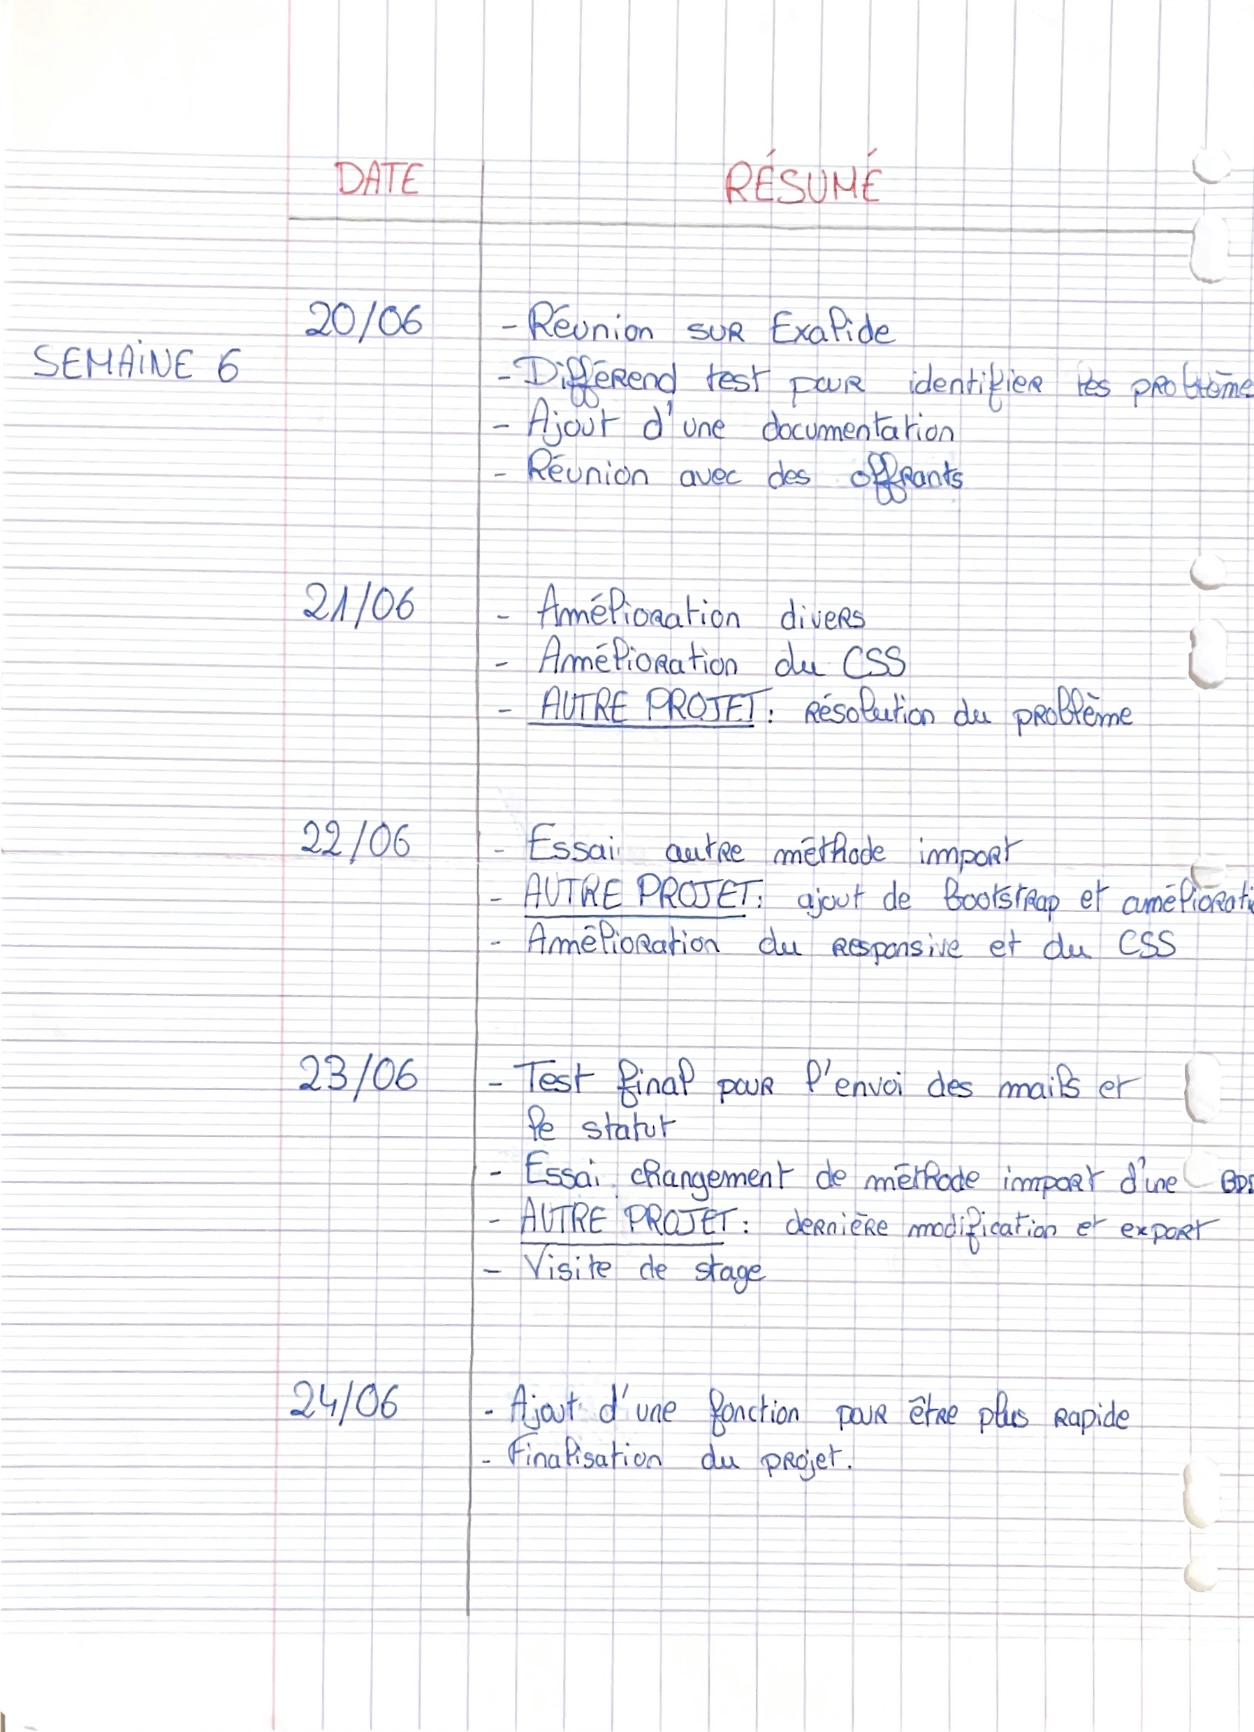 DATE RÉSUMÉ
SEMAINE 6
20/06 - Réunion sur Exafide
- Différend test pour identifier les problème
- Ajout d'une documentation
- Réunion avec des offrants
21/06 - Amélioration divers
- Amélioration du CSS
- AUTRE PROJET : résolution du problème
22/06 - Essai autre méthode import
- AUTRE PROJET : ajout de Bootstrap et améliorati
- Amélioration du responsive et du CSS
23/06 - Test final pour l'envoi des mails et
le statut
- Essai changement de méthode import d'une
- AUTRE PROJET : dernière modification et export
- Visite de stage
24/06 - Ajout d'une fonction pour être plus rapide
- Finalisation du projet.